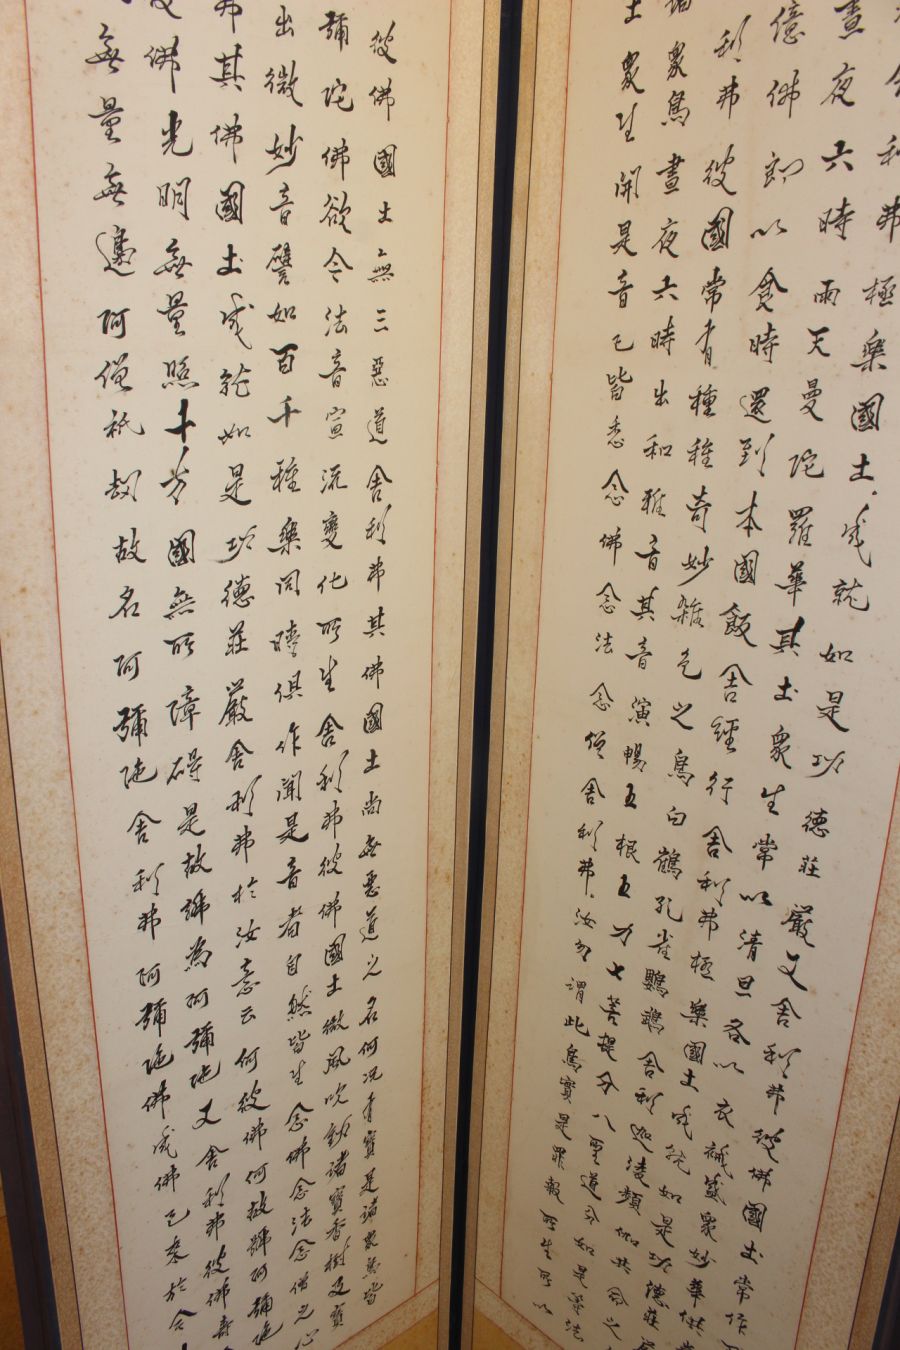 舍利弗極樂國土成就如是功德莊嚴又舍利弗彼佛國土常作
晝夜六時雨天曼陀羅華其土眾生常以清旦各以衣裓盛眾妙華供養
億佛即以食時還到本國飯食經行舍利弗極樂國土成就如是功德莊嚴
利弗彼國常有種種奇妙雜色之鳥白鶴孔雀鸚鵡舍利迦陵頻伽共命之
諸眾鳥晝夜六時出和雅音其音演暢五根五力七菩提分八聖道分如是等法
土眾生聞是音已皆悉念佛念法念僧舍利弗汝勿謂此鳥實是罪報所生所以
彼佛國土無三惡道舍利弗其佛國土尚無惡道之名何況有實是諸眾鳥皆
彌陀佛欲令法音宣流變化所生舍利弗彼佛國土微風吹動諸寶香樹及寶
出微妙音譬如百千種樂同時俱作聞是音者自然皆生念佛念法念僧之心
弗其佛國土成就如是功德莊嚴舍利弗於汝意云何彼佛何故號阿彌陀
彼佛光明無量照十方國無所障碍是故號為阿彌陀又舍利弗彼佛壽
無量無邊阿僧祇劫故名阿彌陀舍利弗阿彌陀佛成佛已來於今